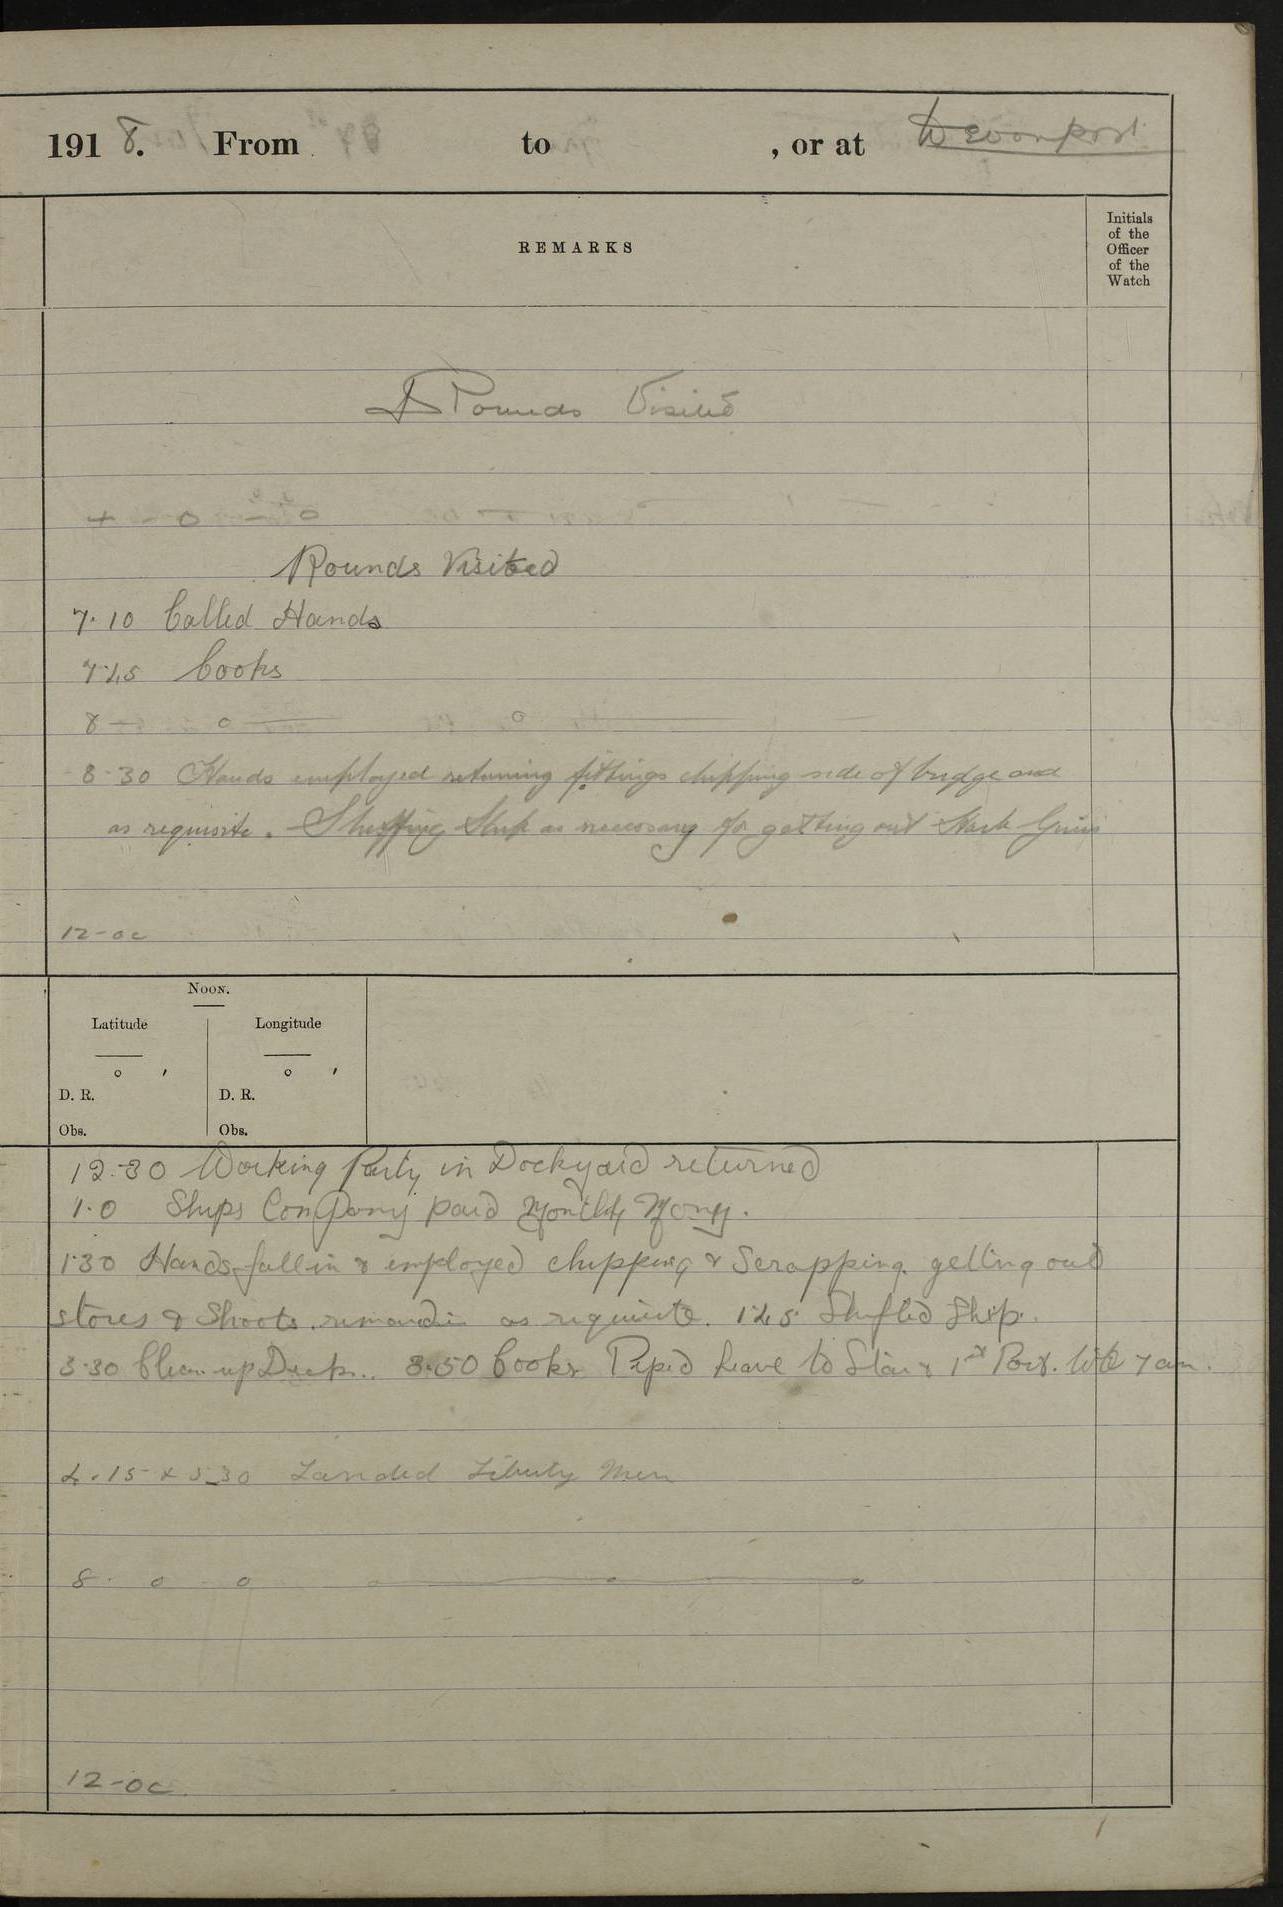 1918. From to , or at Devonport
REMARKS
Initials
of the
Officer
of the
Watch
Rounds Visited
4 - 0 - 0
Rounds Visited
7.10 Called Hands
7.45 Cooks
8 — o — o
8.30 Hands employed returning fittings chipping side of bridge and
as requisite. Shifting Ship as necessary for getting out
12-oc
NOON.
Latitude Longitude
° ′ ° ′
D. R. D. R.
Obs. Obs.
12.30 Working Party in Dockyard returned
1.0 Ships Company paid Monthly Money.
1.30 Hands fall in & employed chipping & Scrapping getting out
stores & Shoots. as requisite. 1.45 Shifted Ship.
3.30 Clean up Decks. 3.50 Cooks Piped Leave to Star & 1st Part. till 7 am.
4.15 & 5.30 Landed Liberty Men
8. o o
12-oc